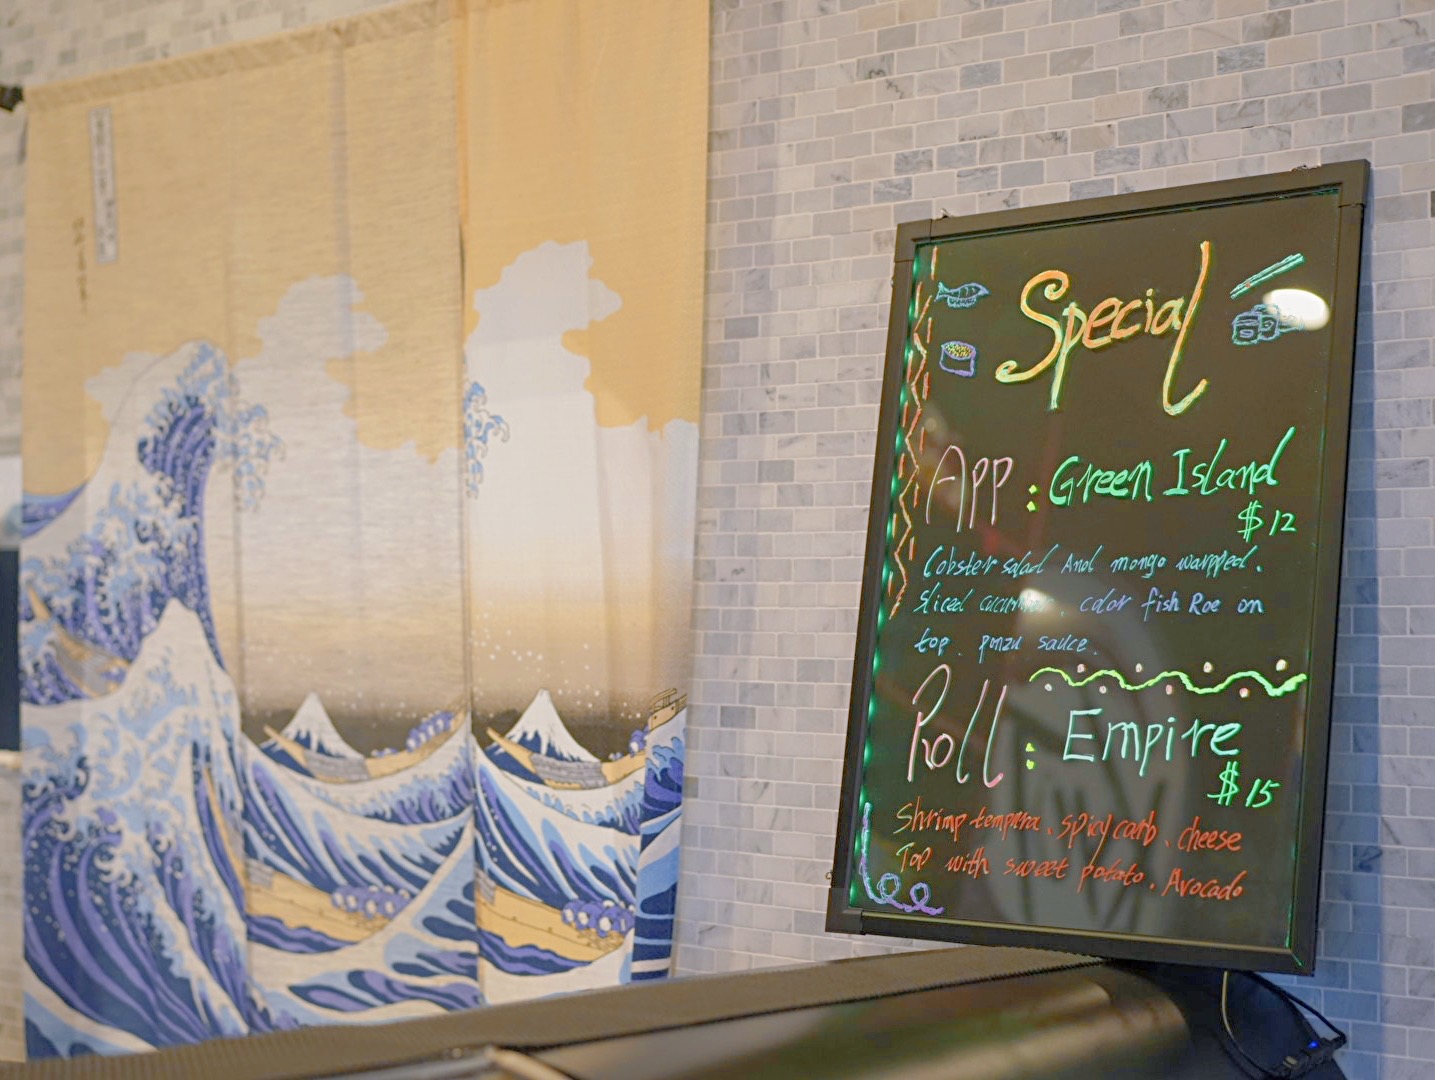 Special
App : Green Island
$12
Lobster salad And mongo warpped.
Sliced cucumber, color fish Roe on
top. ponzu sauce.
Roll : Empire
$15
Shrimp tempura, spicy carb, cheese
Top with sweet potato, Avocado